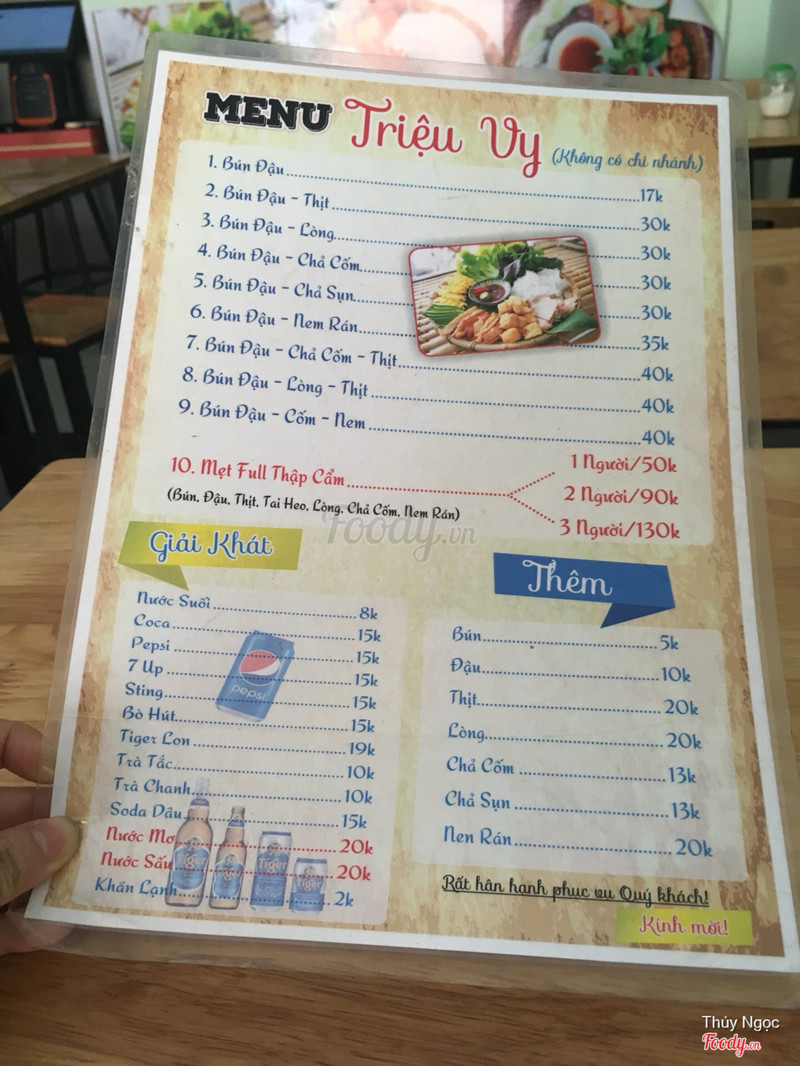 MENU Triệu Vy (Không có chi nhánh)
1. Bún Đậu 17k
2. Bún Đậu - Thịt 30k
3. Bún Đậu - Lòng 30k
4. Bún Đậu - Chả Cốm 30k
5. Bún Đậu - Chả Sụn 30k
6. Bún Đậu - Nem Rán 35k
7. Bún Đậu - Chả Cốm - Thịt 40k
8. Bún Đậu - Lòng - Thịt 40k
9. Bún Đậu - Cốm - Nem 40k
10. Mẹt Full Thập Cẩm
1 Người/50k
2 Người/90k
3 Người/130k
(Bún, Đậu, Thịt, Tai Heo, Lòng, Chả Cốm, Nem Rán)
Foody.vn
Giải Khát
Nước Suối 8k
Coca 15k
Pepsi 15k
7 Up 15k
Sting 15k
Bò Hút 15k
Tiger Lon 19k
Trà Tắc 10k
Trà Chanh 10k
Soda Dâu 15k
Nước Mơ 20k
Nước Sấu 20k
Khăn Lạnh 2k
pepsi
Tiger
Tiger
Tiger
Tiger
Thêm
Bún 5k
Đậu 10k
Thịt 20k
Lòng 20k
Chả Cốm 13k
Chả Sụn 13k
Nen Rán 20k
Rất hân hạnh phuc vu Quý khách!
Kính mời!
Thủy Ngọc
Foody.vn